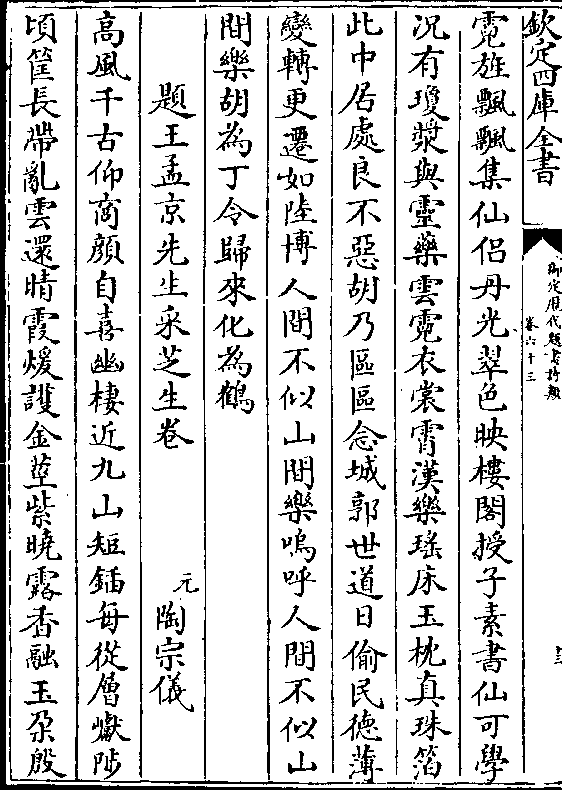 欽定四庫全書
御定歷代題畫詩類
卷六十三
霓旌飄飄集仙侶丹光翠色映樓閣授子素書仙可學
況有瓊漿與靈藥雲霓衣裳霄漢樂瑤床玉枕真珠箔
此中居處良不惡胡乃區區念城郭世道日偷民德薄
變轉更遷如陸博人間不似山間樂嗚呼人間不似山
間樂胡為丁令歸來化為鶴
題王孟京先生采芝生卷
元
陶宗儀
高風千古仰商顔自喜幽棲近九山短鍤每從層巘陟
頃筐長帶亂雲還晴霞煖護金莖紫曉露香融玉朶殷